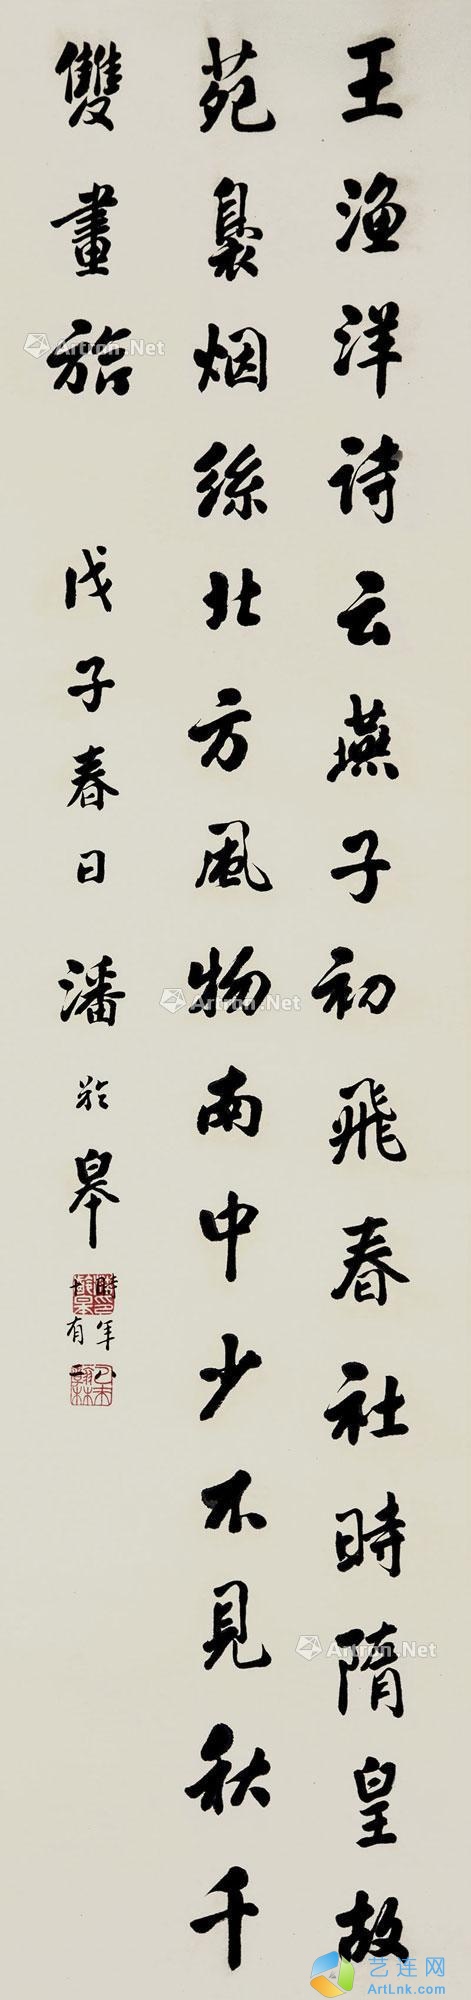 王渔洋诗云燕子初飛春社時隋皇故
苑裊烟絲北方風物南中少不見秋千
雙畫旂
戊子春日 潘齡皋
時年
有二
Artron.Net
Artron.Net
Artron.Net
Artron.Net
艺连网
ArtLnk.com